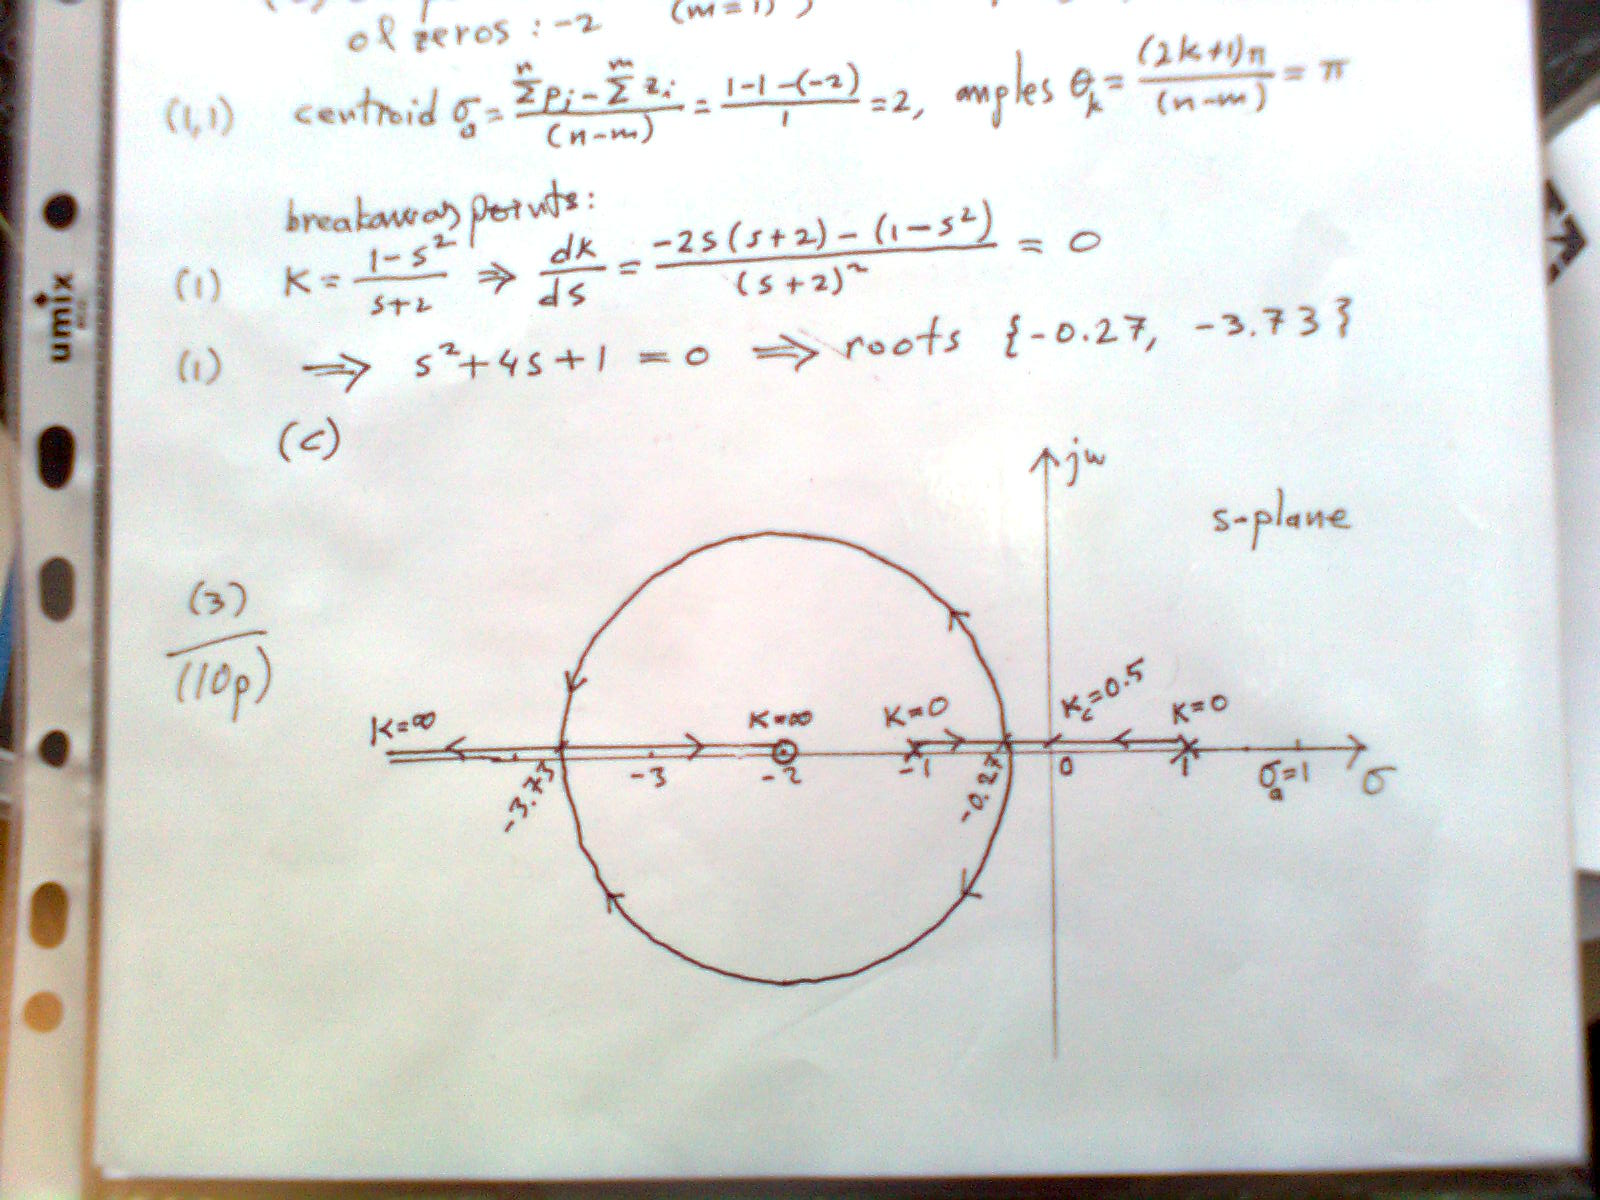 of zeros : -2 (m=1)
(1,1) centroid σ_a = (Σ^n p_i - Σ^m z_i)/(n-m) = (1-1-(-2))/1 = 2, angles θ_k = (2k+1)π/(n-m) = π
breakaway points:
(1) K = (1-s²)/(s+2) ⇒ dk/ds = (-2s(s+2) - (1-s²))/(s+2)² = 0
(1) ⇒ s²+4s+1 = 0 ⇒ roots {-0.27, -3.73}
(c)
jw
s-plane
(3)
(10p)
K=∞ K=∞ K=0 K_c=0.5 K=0
-3.73 -3 -2 -1 -0.27 0 1 σ_a=1 σ
umix